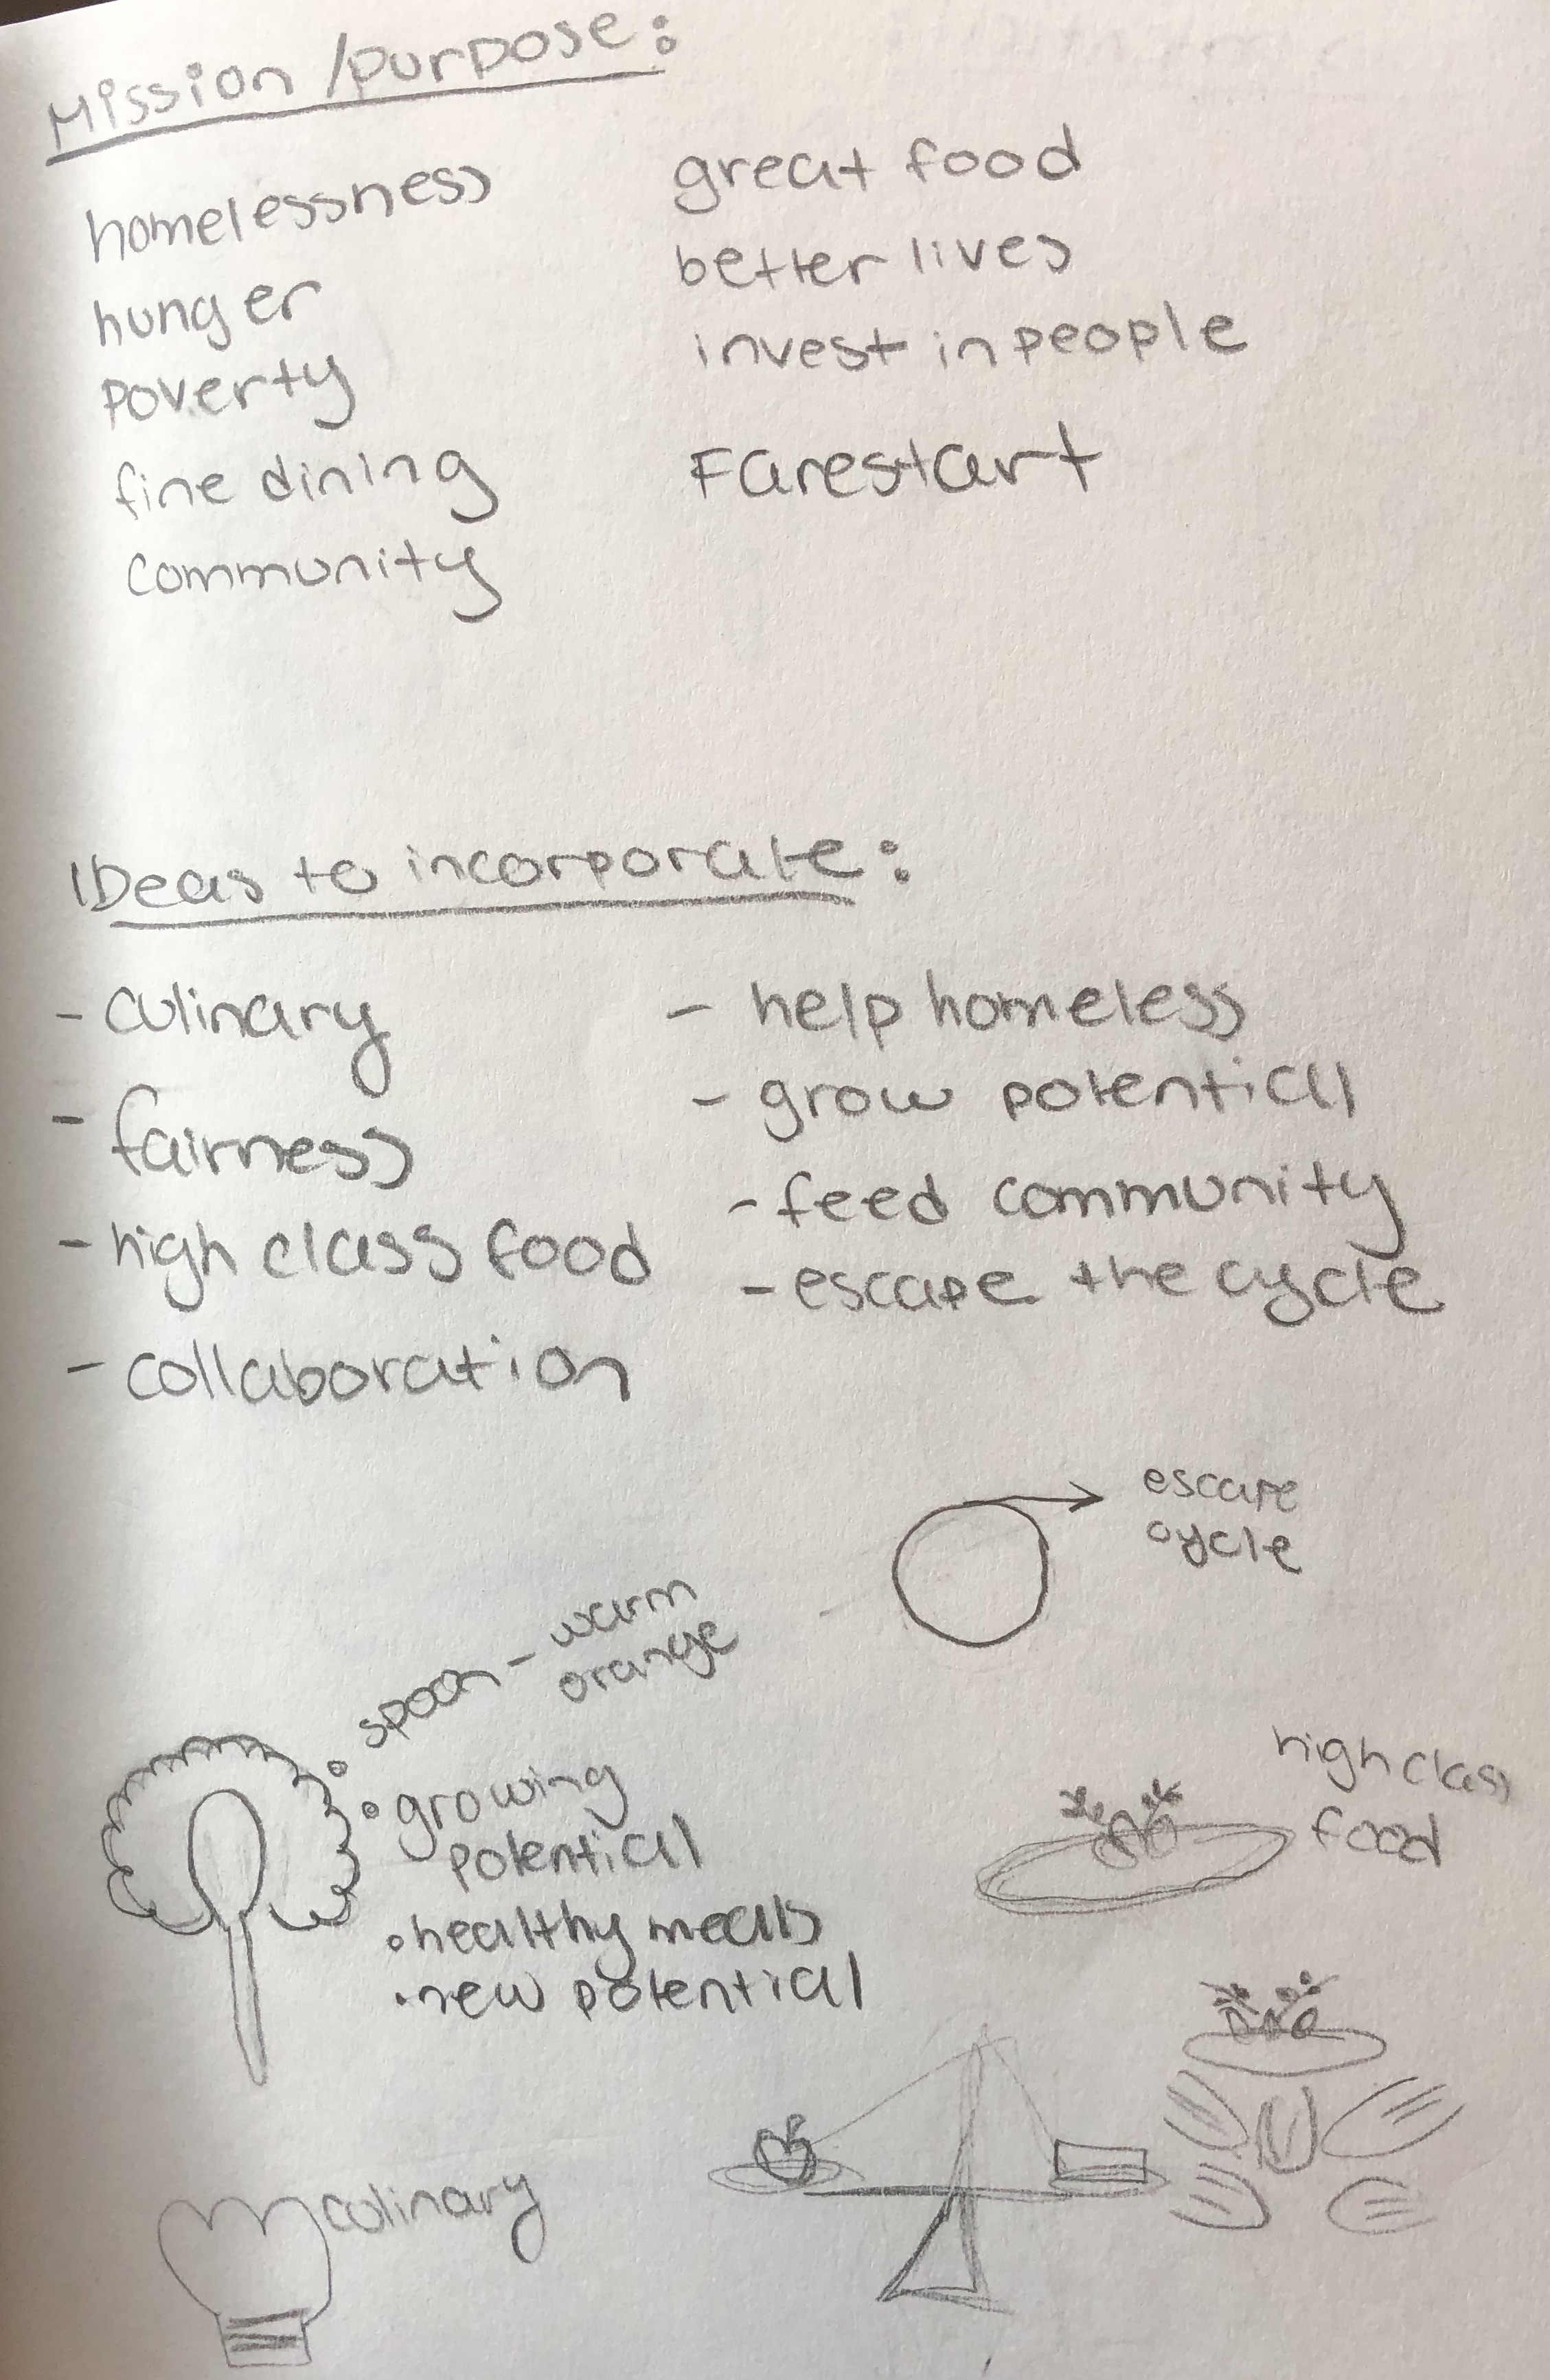 Mission / purpose:
homelessness
hunger
poverty
fine dining
community
great food
better lives
invest in people
Farestart
IDeas to incorporate:
- culinary
- fairness
- high class food
- collaboration
- help homeless
- grow potential
- feed community
- escape the cycle
escape
cycle
• spoon - warm
orange
• growing
potential
• healthy meals
• new potential
high class
food
culinary